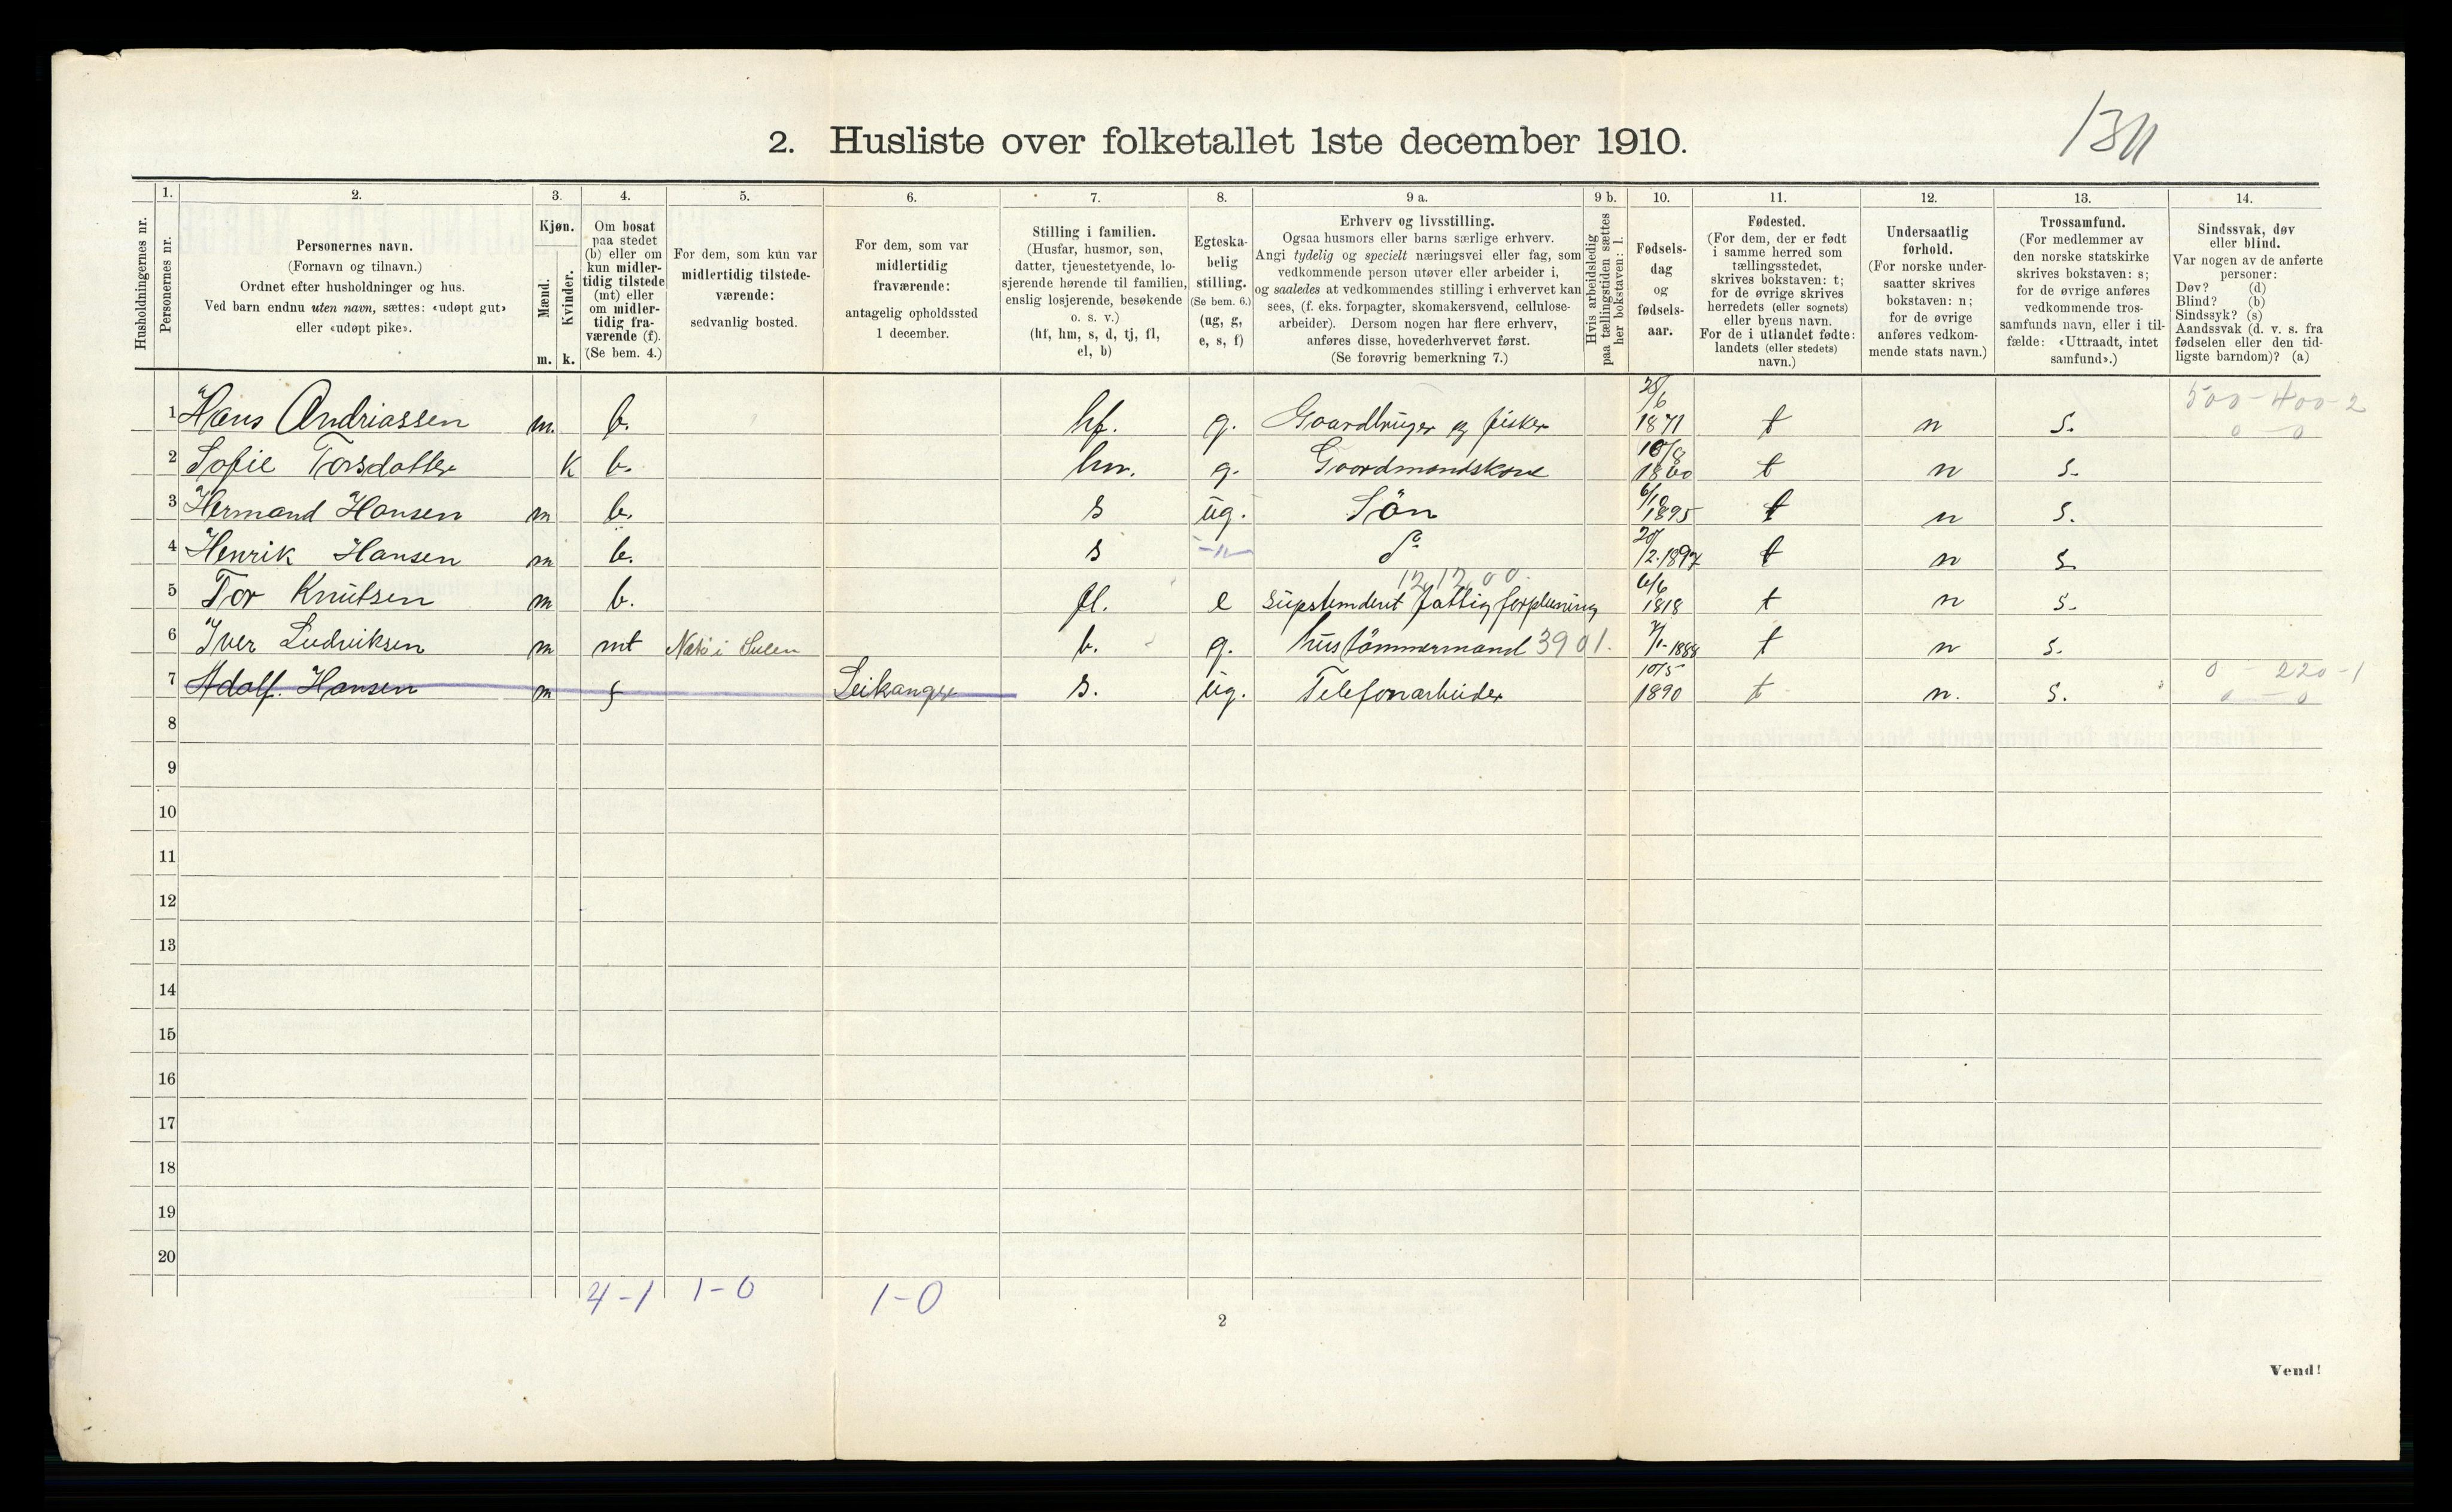 2. Husliste over folketallet 1ste december 1910.
Husholdningernes nr.
1.
Personernes nr.
2.
Personernes navn.
(Fornavn og tilnavn.)
Ordnet efter husholdninger og hus.
Ved barn endnu uten navn, sættes: «udøpt gut»
eller «udøpt pike».
3.
Kjøn.
Mænd.
Kvinder.
m. k.
4.
Om bosat
paa stedet
(b) eller om
kun midler-
tidig tilstede
(mt) eller
om midler-
tidig fra-
værende (f).
(Se bem. 4.)
5.
For dem, som kun var
midlertidig tilstede-
værende:
sedvanlig bosted.
6.
For dem, som var
midlertidig
fraværende:
antagelig opholdssted
1 december.
7.
Stilling i familien.
(Husfar, husmor, søn,
datter, tjenestetyende, lo-
sjerende hørende til familien,
enslig losjerende, besøkende
o. s. v.)
(hf, hm, s, d, tj, fl,
el, b)
8.
Egteska-
belig
stilling.
(Se bem. 6.)
(ug, g,
e, s, f)
9 a.
Erhverv og livsstilling.
Ogsaa husmors eller barns særlige erhverv.
Angi tydelig og specielt næringsvei eller fag, som
vedkommende person utøver eller arbeider i,
og saaledes at vedkommendes stilling i erhvervet kan
sees, (f. eks. forpagter, skomakersvend, cellulose-
arbeider). Dersom nogen har flere erhverv,
anføres disse, hovederhvervet først.
(Se forøvrig bemerkning 7.)
9 b.
Hvis arbeidsledig
paa tællingstiden sættes
her bokstaven: l.
10.
Fødsels-
dag
og
fødsels-
aar.
11.
Fødested.
(For dem, der er født
i samme herred som
tællingsstedet,
skrives bokstaven: t;
for de øvrige skrives
herredets (eller sognets)
eller byens navn.
For de i utlandet fødte:
landets (eller stedets)
navn.)
12.
Undersaatlig
forhold.
(For norske under-
saatter skrives
bokstaven: n;
for de øvrige
anføres vedkom-
mende stats navn.)
13.
Trossamfund.
(For medlemmer av
den norske statskirke
skrives bokstaven: s;
for de øvrige anføres
vedkommende tros-
samfunds navn, eller i til-
fælde: «Uttraadt, intet
samfund».)
14.
Sindssvak, døv
eller blind.
Var nogen av de anførte
personer:
Døv? (d)
Blind? (b)
Sindssyk? (s)
Aandssvak (d. v. s. fra
fødselen eller den tid-
ligste barndom)? (a)
500-400-2
0-0
1 Hans Andriassen m. b. hf. g. Gaardbruger og fisker 1871 t n s.
2 Sofie Torsdatter k b. hm. g. Gaardmandskone 10/8 1860 t n s.
3 Hermand Hansen m b. s ug. Sön 6/10 1895 t n s.
4 Henrik Hansen m b. s -"- do 20/2. 1897 t n s.
12,12,00.
5 Tor Knutsen m b. fl. e 6/6 1818 t n s.
6 Iver Ludviksen m mt b. g. hustömmermand 3901. 1888 t n s.
7 Adolf. Hansen m f Leikanger s. ug. Telefonarbeider 10/5 1890 t n. s. 0 - 220-1
0-0
8
9
10
11
12
13
14
15
16
17
18
19
20
4-1 1-0 1-0
2
Vend!